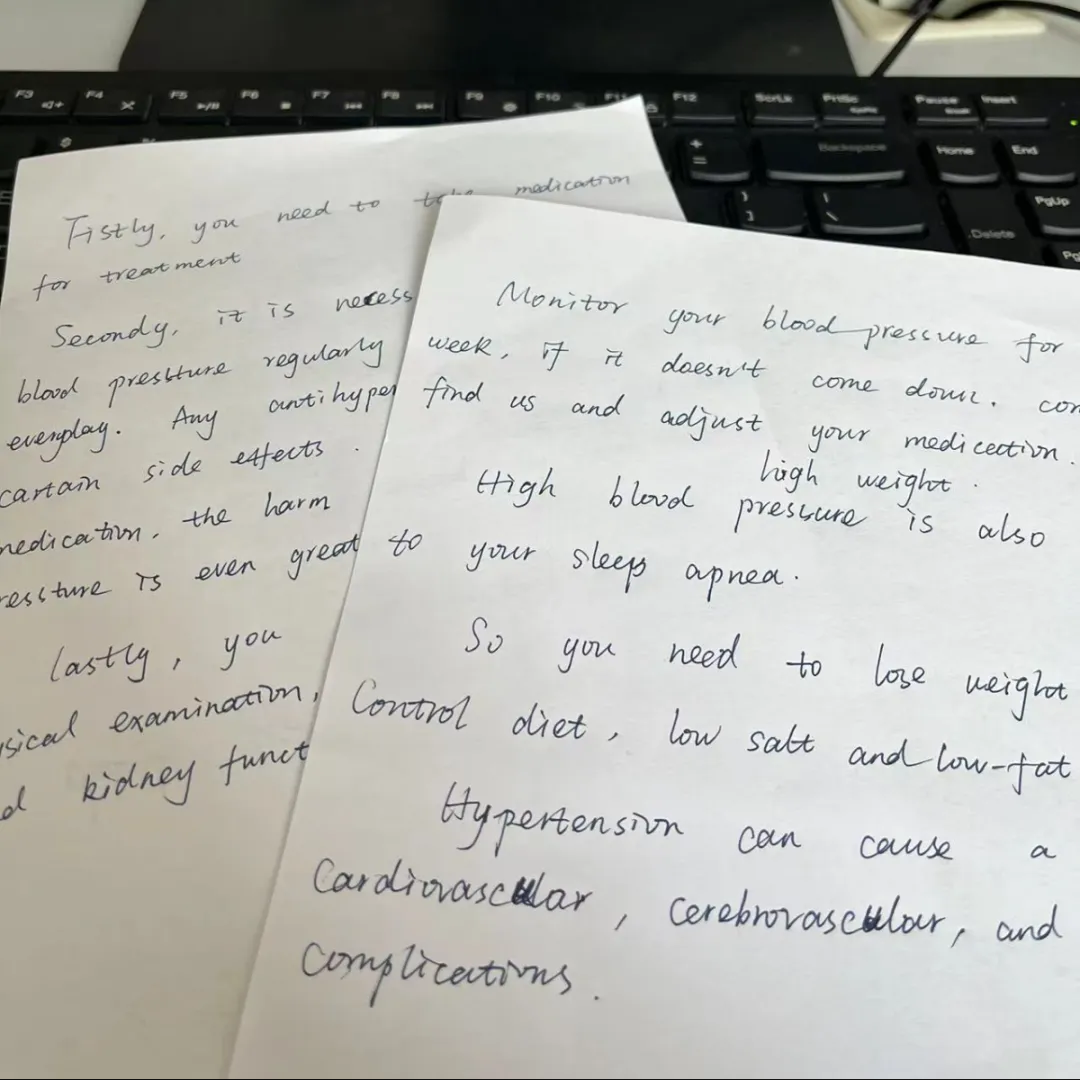 F3
F4
F5
F6
F7
F8
F9
F10
F11
F12
ScrLk
PrtSc
Pause
Insert
Backspace
Home
End
PgUp
Delete
Fistly, you need to take medication
for treatment
Secondly, it is necess
blood pressture regularly
everyday. Any antihyper
cartain side effects.
medication, the harm
ressture is even great
lastly, you
sical examination,
d kidney funct
Monitor your blood pressure for
week, if it doesn't come down. com
find us and adjust your medicection.
high weight.
High blood pressure is also
to your sleep apnea.
So you need to lose weight
Control diet, low salt and low-fat
Hypertension can cause a
Cardiovascular, cerebrovascular, and
complications.